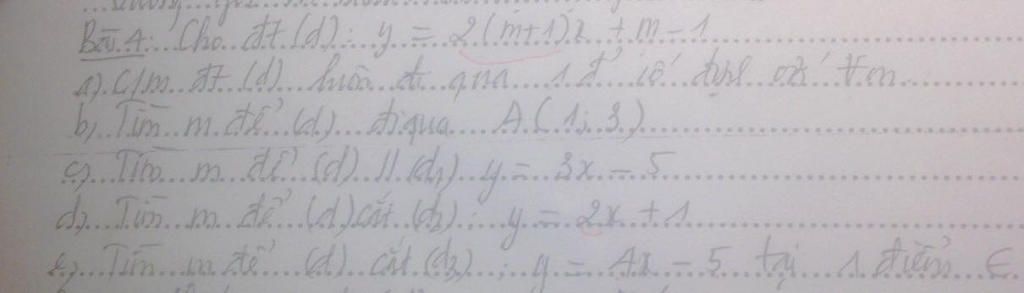 Bài 4: Cho đt (d): y = 2(m+1)x + m - 1
a) C/m đt (d) luôn đi qua 1 đ' cố định
b) Tìm m để (d) đi qua A(1; 3)
c) Tìm m để (d) // (d1) y = 3x - 5
d) Tìm m để (d) cắt (d2): y = 2x + 1
e) Tìm m để (d) cắt (d3): y = 4x - 5 tại 1 điểm ∈